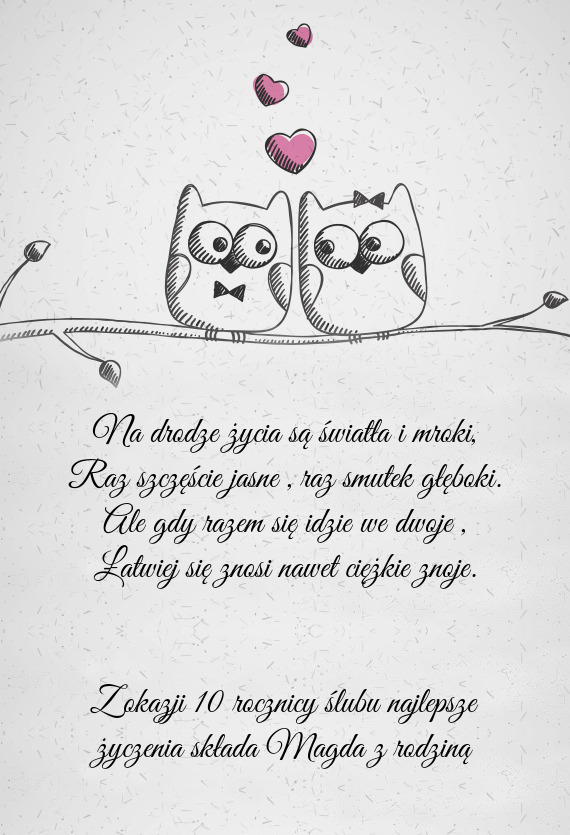 Na drodze życia są światła i mroki,
Raz szczęście jasne , raz smutek głęboki.
Ale gdy razem się idzie we dwoje ,
Łatwiej się znosi nawet ciężkie znoje.
Zokazji 10 rocznicy ślubu najlepsze
życzenia składa Magda z rodziną